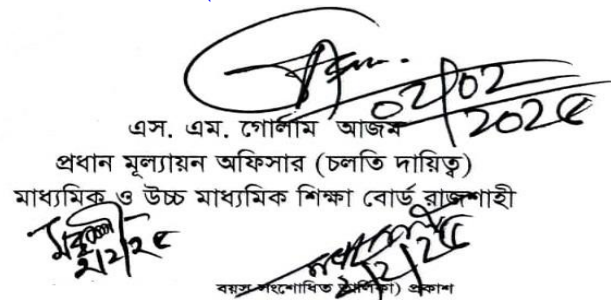 02/02
2025
এস. এম. গোলাম আজম
প্রধান মূল্যায়ন অফিসার (চলতি দায়িত্ব)
মাধ্যমিক ও উচ্চ মাধ্যমিক শিক্ষা বোর্ড রাজশাহী
২/২/২৫
২/২/২৫
সংশোধিত তালিকা) প্রকাশ